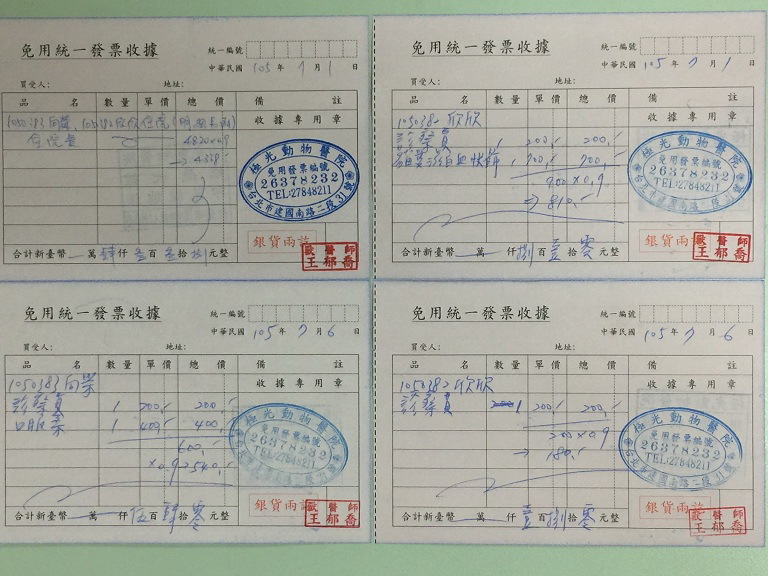 免用統一發票收據
統一編號
中華民國 105 年 7 月 1 日
買受人: 地址:
品 名 數量 單價 總價 備 註
收據專用章
1050383
住院費
4820×0.9
→ 4338.-
極光動物醫院
免用發票編號
26378232
TEL:27848211
台北市建國南路二段31號
銀貨兩訖
歐醫師
王郁喬
合計新臺幣 萬 肆 仟 叁 百 叁 拾 捌 元整
免用統一發票收據
統一編號
中華民國 105 年 7 月 1 日
買受人: 地址:
品 名 數量 單價 總價 備 註
收據專用章
1050382 欣欣
診察費 200.- 200.-
1 700.- 700.-
900×0.9
→ 810.-
極光動物醫院
免用發票編號
26378232
TEL:27848211
台北市建國南路二段31號
銀貨兩訖
歐醫師
王郁喬
合計新臺幣 萬 仟 捌 百 壹 拾 零 元整
免用統一發票收據
統一編號
中華民國 105 年 7 月 6 日
買受人: 地址:
品 名 數量 單價 總價 備 註
收據專用章
1050383 向榮
診察費 1 200.- 200.-
口服藥 1 400.- 400.-
600.-
×0.9=540.-
極光動物醫院
免用發票編號
26378232
TEL:27848211
台北市建國南路二段31號
銀貨兩訖
歐醫師
王郁喬
合計新臺幣 萬 仟 伍 百 肆 拾 零 元整
免用統一發票收據
統一編號
中華民國 105 年 7 月 6 日
買受人: 地址:
品 名 數量 單價 總價 備 註
收據專用章
1050382 欣欣
診察費 1 200.- 200.-
200×0.9
→ 180.-
極光動物醫院
免用發票編號
26378232
TEL:27848211
台北市建國南路二段31號
銀貨兩訖
歐醫師
王郁喬
合計新臺幣 萬 仟 壹 百 捌 拾 零 元整